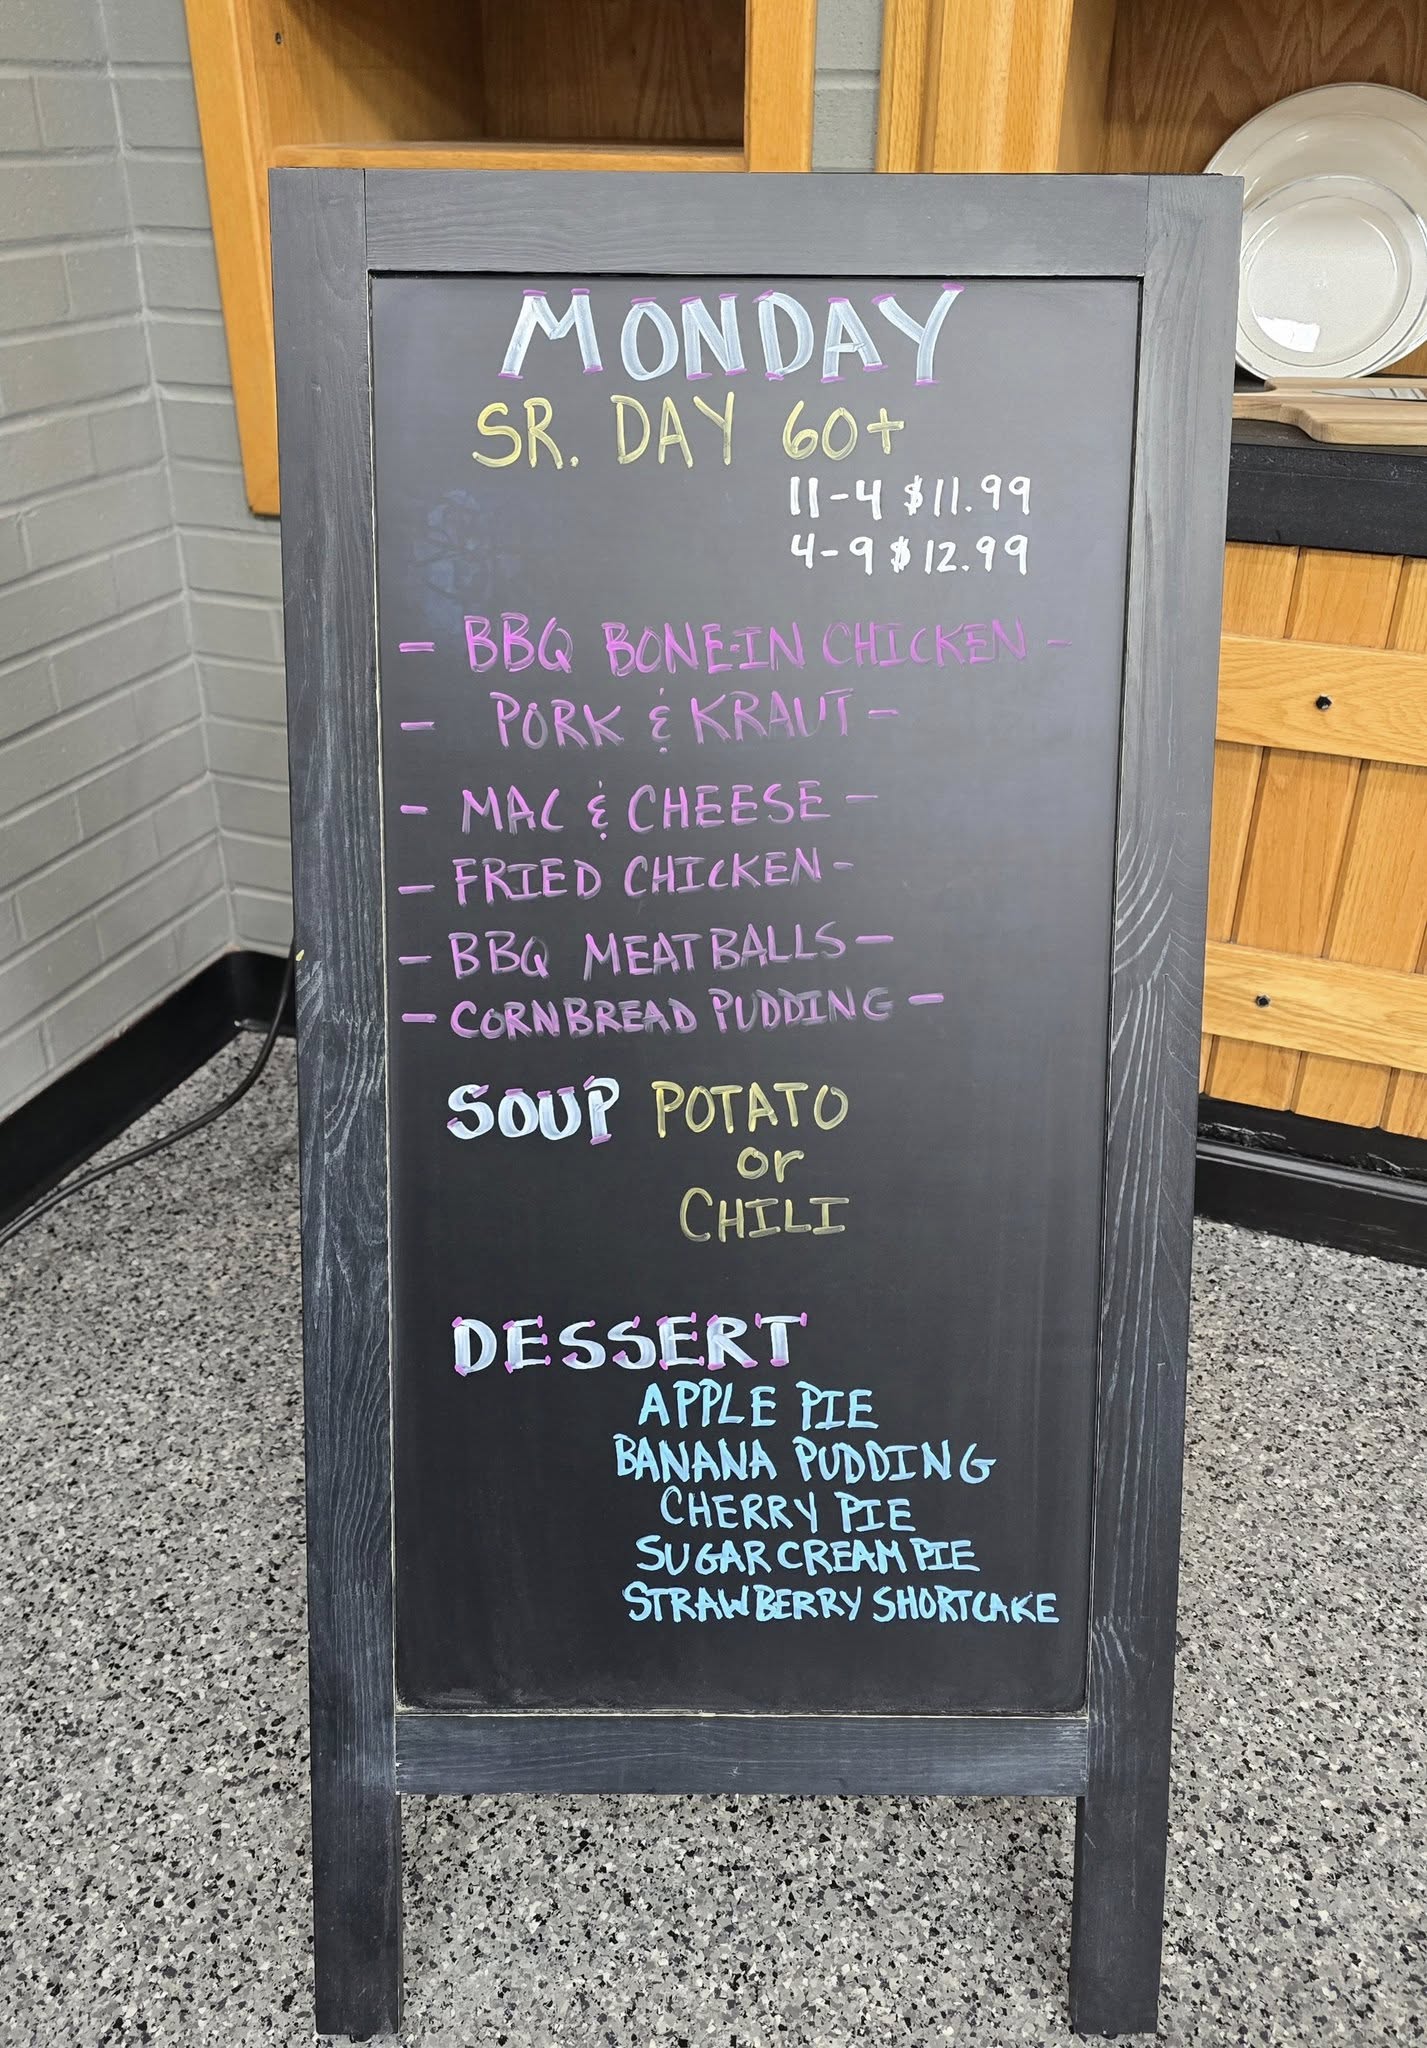 MONDAY
SR. DAY 60+
11-4 $11.99
4-9 $12.99
- BBQ BONE-IN CHICKEN -
- PORK & KRAUT -
- MAC & CHEESE -
- FRIED CHICKEN -
- BBQ MEATBALLS -
- CORNBREAD PUDDING -
SOUP POTATO
or
CHILI
DESSERT
APPLE PIE
BANANA PUDDING
CHERRY PIE
SUGAR CREAM PIE
STRAWBERRY SHORTCAKE